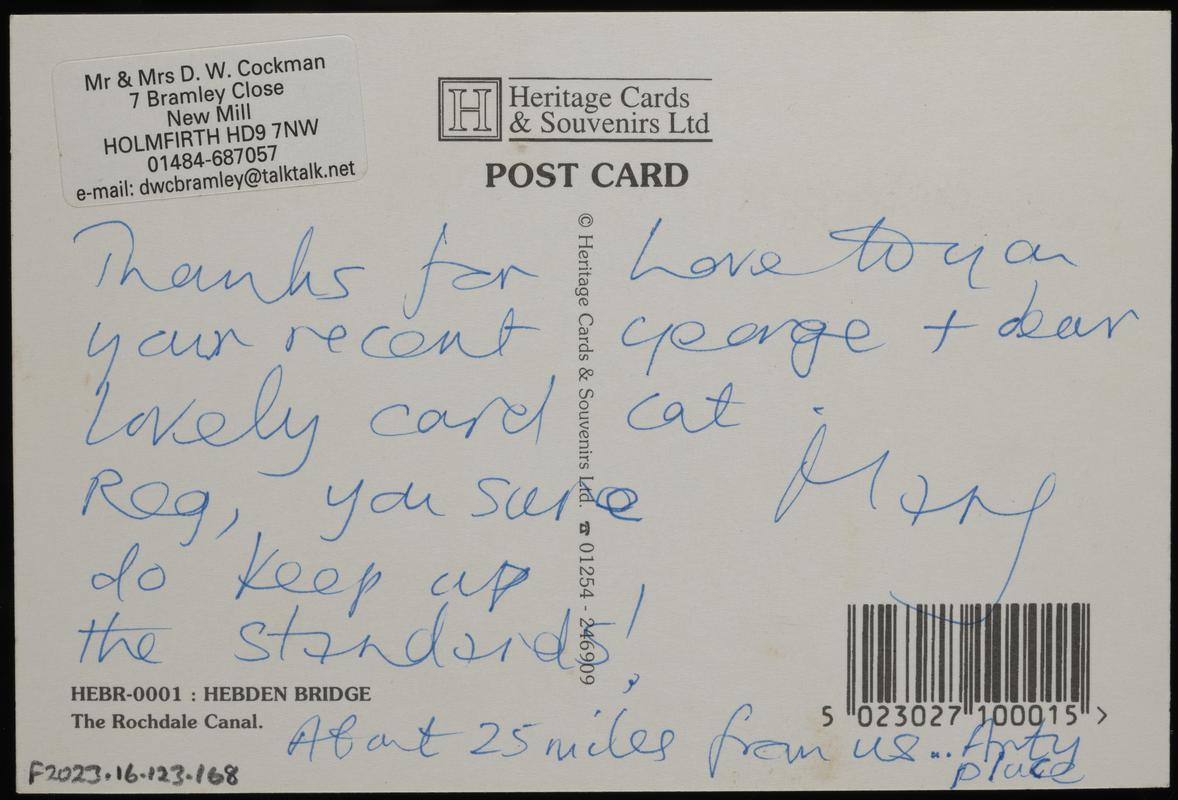 Mr & Mrs D. W. Cockman
7 Bramley Close
New Mill
HOLMFIRTH HD9 7NW
01484-687057
e-mail: dwcbramley@talktalk.net
H
Heritage Cards
& Souvenirs Ltd
POST CARD
Thanks for
your recent
Lovely card
Reg, you sure
do keep up
the standards!
© Heritage Cards & Souvenirs Ltd. ☎ 01254 - 246909
Love to you
george + dear
cat.
Mary
HEBR-0001 : HEBDEN BRIDGE
The Rochdale Canal.
About 25 miles from us... Arty
place
5 023027 100015 >
F2023.16.123.168